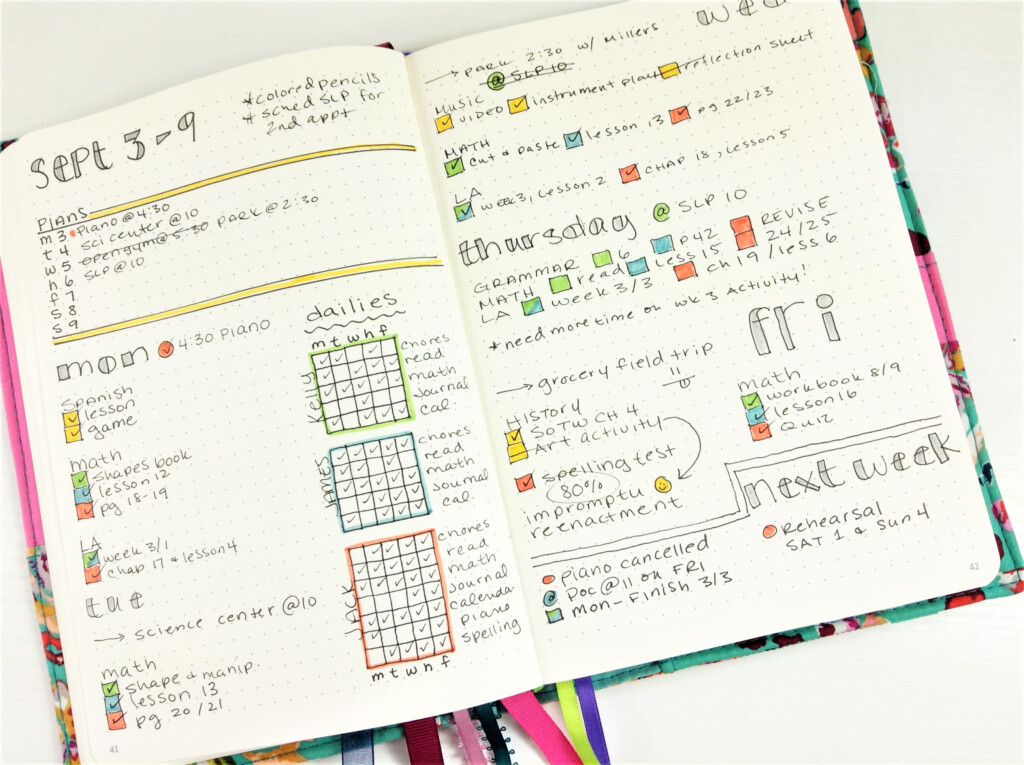 sept 3-9
*colored pencils
*sched SLP for
2nd appt
PLANS
m 3 piano@4:30
t 4 sci center@10
w 5 opengym@5:30 PARK@2:30
h 6 SLP@10
f 7
s 8
s 9
mon 4:30 piano
Spanish
lesson
game
math
shapes book
lesson 12
pg 18-19
LA
week 3/1
chap 17 & lesson 4
tue
→ science center @10
math
shape & manip.
lesson 13
pg 20/21
41
dailies
m t w h f
chores
read
math
journal
cal.
chores
read
math
journal
cal.
JACK
chores
read
math
journal
calenda
piano
spelling
m t w h f
wed
→ PARK 2:30 w/ Millers
@ SLP 10
MUSIC
video instrument play reflection sheet
MATH
cut & paste lesson 13 pg 22/23
LA
week 3, lesson 2 CHAP 18, Lesson 5
thursday @ SLP 10
GRAMMAR 6 p42 REVISE
MATH read Less 15 24/25
LA week 3/3 ch 19/less 6
*need more time on wk 3 activity!
→ grocery field trip
HISTORY
SOTW CH 4
Art activity
spelling test
80%
impromptu
reenactment
fri
math
workbook 8/9
lesson 16
Quiz
next week
piano cancelled
Doc@11 on FRI
mon-Finish 3/3
Rehearsal
SAT 1 & Sun 4
42